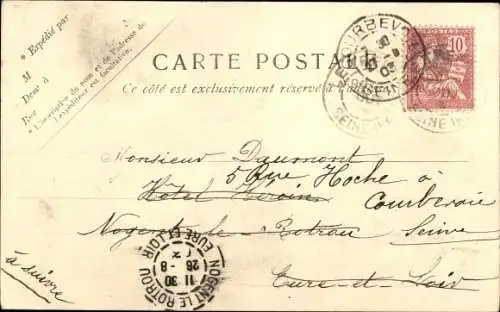 * Expédié par
M
Dem^t à
Rue
* L'inscription du nom et de l'adresse de
l'expéditeur est facultative.
CARTE POSTALE
Ce côté est exclusivement réservé à l'adresse
COURBEVOIE
SEINE
10
Monsieur Daumont
5 Rue Hoche à
Hotel
Courbevoie
Nogent-le-Rotrou Seine
Eure-et-Loir
à suivre
NOGENT LE ROTROU
EURE ET LOIR
11 30
26 - 8